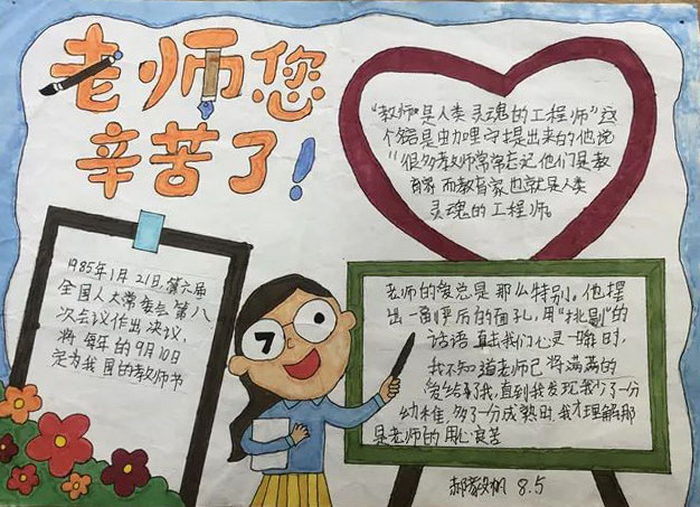 老师您
辛苦了!
"教师"是人类灵魂的工程师"这
个名言是由加理宁提出来的他说
"很多教师常常忘记他们是教
育家而教育家也就是人类
灵魂的工程师。
1985年1月21日,第六届
全国人大常委会第八
次会议作出决议,
将每年的9月10日
定为我国的教师节
老师的爱总是那么特别。他摆
出一副严厉的面孔,用"挑剔"的
话语直击我们心灵一暗时,
我不知道老师已将满满的
爱给了我,直到我发现我少了一分
幼稚,多了一分成熟时,我才理解那
是老师的用心良苦
郝 帆 8.5